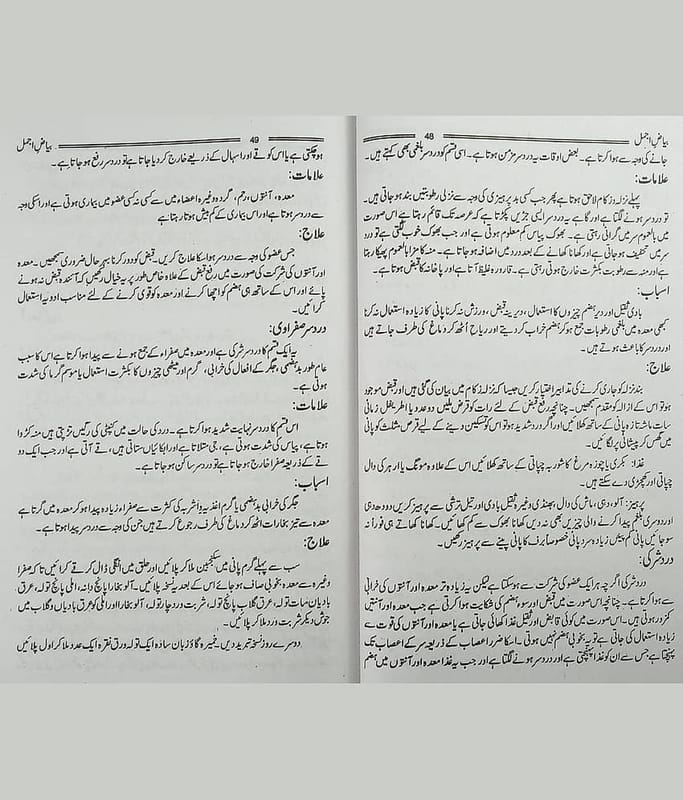 بیاض اجمل
48
جانے کی وجہ سے ہوا کرتا ہے۔ بعض اوقات یہ درد سر مزمن ہوتا ہے۔ اسی قسم کو درد سر بلغمی بھی کہتے ہیں۔
علامات:
پہلے نزلہ و زکام لاحق ہوتا ہے پھر جب کسی بد پرہیزی کی وجہ سے نزلی رطوبتیں بند ہو جاتی ہیں۔
تو درد سر ہونے لگتا ہے اور گاہے یہ درد سر ایسی جڑیں پکڑتا ہے کہ عرصہ تک قائم رہتا ہے اس صورت
میں بالعموم سر میں گرانی رہتی ہے۔ بھوک پیاس کم معلوم ہوتی ہے اور جب بھوک خوب لگتی ہے تو درد
سر میں تخفیف ہو جاتی ہے اور کھانا کھانے کے بعد درد میں اضافہ ہو جاتا ہے۔ منہ کا مزا بالعموم پھیکا رہتا
ہے اور منہ سے رطوبت بکثرت خارج ہوتی رہتی ہے۔ قارورہ غلیظ آتا ہے اور پاخانہ کا قبض ہوتا ہے۔
اسباب:
بادی ثقیل اور دیر ہضم چیزوں کا استعمال، دیرینہ قبض، ورزش نہ کرنا پانی کا زیادہ استعمال نہ کرنا
کبھی معدہ میں بلغمی رطوبات جمع ہو کر ہضم خراب کر دیتے اور ریاح اٹھ کر دماغ کی طرف جاتے ہیں
اور درد سر کا باعث ہوتے ہیں۔
علاج:
بند نزلہ کو جاری کرنے کی تدابیر اختیار کریں جیسا کہ نزلہ زکام میں بیان کی گئی ہیں اور قبض موجود
ہو تو اس کے ازالہ کو مقدم سمجھیں۔ چنانچہ رفع قبض کے لئے رات کو قرص ملین دو عدد یا اطریفل زمانی
سات ماشہ تازہ پانی کے ساتھ کھلائیں اور اگر درد شدید ہو تو اس کو تسکین دینے کے لیے قرص مثلث کو پانی
میں گھس کر پیشانی پر لگائیں۔
غذا: بکری یا چوزہ مرغ کا شوربہ چپاتی کے ساتھ کھلائیں اس کے علاوہ مونگ یا ارہر کی دال
چپاتی اور کھچڑی دے سکتے ہیں۔
پرہیز: آلو، دہی، ماش کی دال، بھنڈی وغیرہ ثقیل بادی اور تیل ترشی سے پرہیز کریں دودھ دہی
اور دوسری بلغم پیدا کرنے والی چیزیں بھی نہ دیں کھانا بھوک سے کم کھائیں۔ کھانا کھاتے ہی فوراً نہ
سو جائیں پانی کم پیئں زیادہ سرد پانی خصوصاً برف کا پانی پینے سے پرہیز رکھیں۔
درد شرکی:
درد شرکی اگرچہ ہر ایک عضو کی شرکت سے ہو سکتا ہے لیکن یہ زیادہ تر معدہ اور آنتوں کی خرابی
سے ہوا کرتا ہے۔ چنانچہ اس صورت میں قبض اور سوء ہضم کی شکایت ہوا کرتی ہے جب معدہ اور آنتیں
کمزور ہوتی ہیں۔ اس صورت میں کوئی قابض اور ثقیل غذا کھائی جاتی ہے یا معدہ اور آنتوں کی قوت سے
زیادہ استعمال کی جاتی ہے تو یہ بخوبی ہضم نہیں ہوتی۔ اسکا ضرر اعصاب کے ذریعہ سر کے اعصاب تک
پہنچتا ہے جس سے ان کو غذا پہنچتی ہے اور درد سر ہونے لگتا ہے اور جب یہ غذا معدہ اور آنتوں میں ہضم
بیاض اجمل
49
ہو چکتی ہے یا اس کو قے اور اسہال کے ذریعے خارج کر دیا جاتا ہے تو درد سر رفع ہو جاتا ہے۔
علامات:
معدہ، آنتوں، رحم، گردہ وغیرہ اعضاء میں سے کسی نہ کسی عضو میں بیماری ہوتی ہے اور اسکی وجہ
سے درد سر ہوتا ہے اور اس بیماری کے کم بیش ہوتا رہتا ہے
علاج:
جس عضو کی وجہ سے درد سر ہو اسکا علاج کریں۔ قبض کو دور کرنا بہر حال ضروری سمجھیں۔ معدہ
اور آنتوں کی شرکت کی صورت میں رفع قبض کے علاوہ خاص طور پر یہ خیال رکھیں کہ آئندہ قبض نہ ہونے
پائے اور اس کے ساتھ ہی ہضم کو اچھا کرنے اور معدہ کو قوی کرنے کے لئے مناسب ادویہ استعمال
کرائیں۔
درد سر صفراوی:
یہ ایک قسم کا درد سر شرکی ہے اور معدہ میں صفراء کے جمع ہونے سے پیدا ہوا کرتا ہے اس کا سبب
عام طور پر بدہضمی، جگر کے افعال کی خرابی، گرم اور میٹھی چیزوں کا بکثرت استعمال یا موسم گرما کی شدت
ہوتی ہے۔
علامات:
اس قسم کا درد سر نہایت شدید ہوا کرتا ہے۔ درد کی حالت میں کنپٹی کی رگیں تڑپتی ہیں منہ کڑوا
ہوتا ہے، پیاس کی شدت ہوتی ہے، جی متلاتا ہے اور ابکائیاں ستاتی ہیں، قے آتی ہے اور جب ایک دو
قے کے ذریعہ صفرا خارج ہو جاتا ہے تو درد سر ساکن ہو جاتا ہے۔
اسباب:
جگر کی خرابی بدہضمی یا گرم اغذیہ و اشربہ کی کثرت سے صفراء زیادہ پیدا ہو کر معدہ میں گرتا ہے
معدہ سے تیز بخارات اٹھ کر دماغ کی طرف رجوع کرتے ہیں جن کی وجہ سے درد سر پیدا ہوتا ہے۔
علاج:
سب سے پہلے گرم پانی میں سکنجبین ملا کر پلائیں اور حلق میں انگلی ڈال کر قے کرائیں تا کہ صفرا
وغیرہ سے معدہ بخوبی صاف ہو جائے اس کے بعد یہ نسخہ پلائیں۔ آلو بخارا پانچ دانہ، املی پانچ تولہ، عرق
بادیان سات تولہ، عرق گلاب پانچ تولہ، شربت ورد چار تولہ، آلو بخارا اور املی کو عرق بادیاں و گلاب میں
جوش دیکر شربت ورد ملا کر پلائیں۔
دوسرے روز نسخہ تبرید دیں۔ خمیرہ گاؤ زبان سادہ ایک تولہ ورق نقرہ ایک عدد ملا کر اول پلائیں